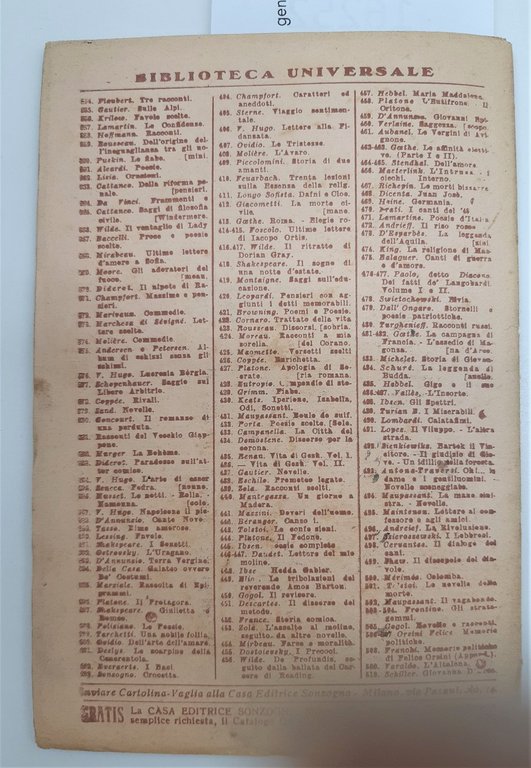 gen
BIBLIOTECA UNIVERSALE
Flaubert. Tre racconti.
Gautier. Sulle Alpi.
Kriloso. Favole scelte.
Lamartin. Le Confidenze.
Hoffmann. Racconti.
Rousseau. Dell'origine del-
l'ineguaglianza tra gli uo-
Puskin. La fiaba. [mini.
Aleardi. Poesie.
Lisia. Orazioni.
Cattaneo. Della riforma pe-
nale. [pensieri.
Da Vinci. Frammenti e
Cattaneo. Saggi di filosofia
civile. [Windermere.
Wilde. Il ventaglio di Lady
Baccelli. Prose e poesie
scelte.
Mirabeau. Ultime lettere
d'amore a Sofia.
Moore. Gli adoratori del
fuoco.
Diderot. Il nipote di Ra-
Champfort. Massime e pen-
sieri.
Marivaux. Commedie.
Marchesa di Sévigné. Let-
tere scelte.
Molière. Commedie.
Andersen e Petersen. Al-
bum di schizzi senza gli
schizzi.
V. Hugo. Lucrezia Borgia.
Schopenhauer. Saggio sul
Libero Arbitrio.
Coppée. Rivali.
Sand. Novelle.
Goncourt. Il romanzo di
una perduta.
Racconti del Vecchio Giap-
pone.
Murger La Bohème.
Diderot. Paradosso sull'at-
tor comico.
V. Hugo. L'arte di piacere
Seneca. Fedra. [nonno.
Musset. Le notti. - Rolla.
Namouna.
V. Hugo. Napoleone il pic-
D'Annunzio. Canto Novo.
Tasso. Rime amorose.
Lessing. Favole.
Shakespeare. I Sonetti.
Ostrovsky. L'Uragano.
D'Annunzio. Terra Vergine.
Della Casa Galateo ovvero
De' Costumi.
Marziale. Raccolta di Epi-
grammi.
Platone. Il Protagora.
Shakespeare. Giulietta e
Romeo.
Poliziano. Le Poesie.
Tarchetti. Una nobile follia.
Ovidio. Dell'arte d'amare.
Declys. Le scarpine della
Cenerentola.
Euripide. I Baci
Benzogno. Ornesta.
404. Champfort. Caratteri ed
aneddoti.
405. Sterne. Viaggio sentimen-
tale.
406. V. Hugo. Lettere alla Fi-
danzata.
407. Ovidio. Le Tristezze.
408. Molière. L'Avaro.
409. Piccolomini. Storia di due
amanti.
410. Feuerbach. Trenta lezioni
sulla Essenza della relig.
411. Longo Sofista. Dafni e Cloe.
412. Giacometti. La morte ci-
vile. [mane.
413. Gœthe. Roma. - Elegie ro-
414-415. Foscolo. Ultime lettere
di Iacopo Ortis.
416-417. Wilde. Il ritratto di
Dorian Gray.
418. Shakespeare. Il sogno di
una notte d'estate.
419. Montaigne. Saggi sull'edu-
cazione.
420. Leopardi. Pensieri con ag-
giunti i detti memorabili.
421. Browning. Poemi e Poesie.
422. Cornaro. Trattato della vita
423. Rousseau. Discorsi. [sobria.
424. Moreas. Racconti a mia
sorella. [del Corano.
425. Maometto. Versetti scelti
426. Coppée. Enrichetta.
427. Platone. Apologia di So-
crate. [ria romana.
428. Eutropio. Compendio di sto-
429. Grimm. Fiabe.
430. Keats. Iperione, Isabella,
Odi, Sonetti.
431. Maupassant. Boule de suif.
432. Porta. Poesie scelte. [Sole.
433. Campanella. La Città del
434. Demostene. Discorso per la
corona.
435. Renan. Vita di Gesù. Vol. I.
436. — Vita di Gesù. Vol. II.
437. Gautier. Novelle.
438. Eschilo. Prometeo legato.
439. Zola. Racconti scelti.
440. Mantegazza. Un giorno a
Madera.
441. Mazzini. Doveri dell'uomo.
442. Béranger. Canzoni.
443. Tolstoi. Le sonte sieni.
444. Platone. Il Fedone.
445. Ibsen. Poesie complete
446-447. Daudet. Lettere del mio
molino.
448. Ibsen Hedda Gabler.
449. Eliot. Le tribolazioni del
reverendo Amos Barton.
450. Gogol. Il revisore.
451. Descartes. Il discorso del
metodo.
452. France. Storia comica.
453. Zola. L'assalto al molino,
seguito da altre novelle.
454. Mirbeau. Farse e moralità.
455. Dostoievsky. I Precoci.
456. Wilde. De Profundis, se-
guito dalla ballata del Car-
cere di Reading.
457. Hebbel. Maria Maddalena.
458. Platone L'Eutifrone. Il
Critone.
459. D'Annunzio. Giovanni Epi-
460. Verlaine. Saggezza. [scopo.
461. Aubanel. Le Vergini di Avi-
gnone.
462-463. Gœthe. Le affinità eletti-
ve. (Parte I e II).
464-465. Stendhal. Dell'amore
466. Maeterlink. L'Intrusa -
Interno.
467. Richepin. Le morti bizzarre
468. Dicenta. Juan José.
469. Heine. Germania.
470. Prati. I canti del '48
471. Lamartine. Poesie d'Italia
472. Andrieff. Il riso rosso
473. D'Esparbès. La leggenda
dell'Aquila.
474. King. La religione di Mas-
475. Balaguer. Canti di guerra
e d'amore.
476-477. Paolo, detto Diacono.
Dei fatti de' Langobardi
Volume I e II.
478. Swietochowski. Elvia.
479. Dall'Ongaro. Stornelli e
poesie patriottiche.
480. Turghenieff. Racconti russi.
481-482. Gœthe. La campagna di
Francia. - L'assedio di Ma-
gonza.
483. Michelet. Storia di Giovan-
484. Schurè. La leggenda di
Budda. [anello.
485. Hebbel. Gige e il suo
486-487. Vallès. L'Insorto.
488. Ibsen. Gli Spettri.
489. Turiau E. I Miserabili.
490. Lombardi. Calatafimi.
491. Lopez. Il Viluppo. - L'altra
strada.
492. Sienkiewicz. Bartek il Vin-
citore. - Il giudizio di Gio-
ve. - Un idillio nella foresta.
493. Antona-Traversi. Oh!.. le
dame e i gentiluomini.
494. Maupassant. La mano sini-
stra. - Novelle.
495. Maintenon. Lettere al con-
fessore e agli amici.
496. Andrief. La Rivoluzione.
497. Nierossewski. I Lebbrosi.
498. Cervantes. Il dialogo dei
cani.
499. Shaw. Il discepolo del dia-
volo.
500. Mérimée. Colomba.
501. Tolstoi. Le novelle della
morte.
503. Maupassant. Il vagabondo.
504. Frontino. Gli strata-
gemmi.
505. Gogol. Novelle e racconti.
Orsini Felice Memorie
politiche.
508. Franchi. Memorie politiche
di Felice Orsini (Append.).
509. Farulde. L'Altalena.
510. Schiller. Giovanna D'Arco.
Inviare Cartolina-Vaglia alla Casa Editrice Sonzogno - Milano, via Pasquirolo, 14.
GRATIS LA CASA EDITRICE SONZOGNO
semplice richiesta, il Catalogo